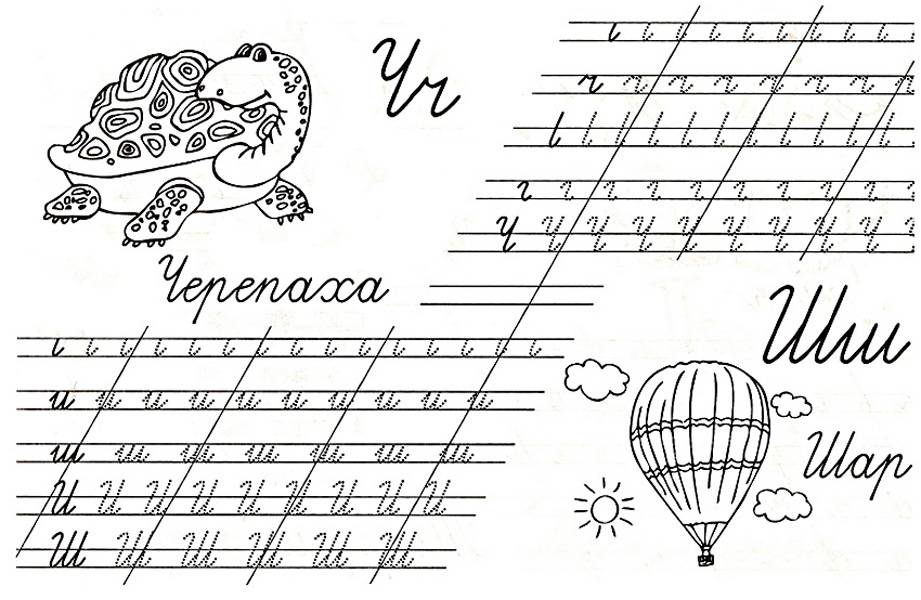 Чч
ч ч ч ч ч ч ч ч
Ч Ч Ч Ч Ч Ч Ч Ч Ч Ч
Черепаха
Шш
и и и и и и и и и и
ш ш ш ш ш ш ш
И И И И И И И И И
Ш Ш Ш Ш Ш Ш
Шар